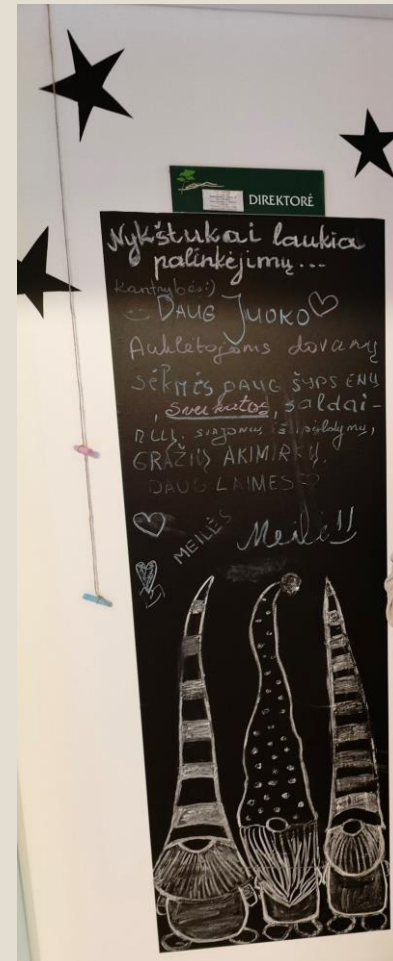 DIREKTORĖ
Nykštukai laukia
palinkėjimų...
Kantrybės:)
DAUG JUOKO
Auklėtojoms dovanų
SĖKMĖS DAUG ŠYPSENŲ
, Sveikatos, saldai-
nių, svajonių išsipildymų,
GRAŽIŲ AKIMIRKŲ,
DAUG LAIMĖS
MEILĖS
Meilė!!